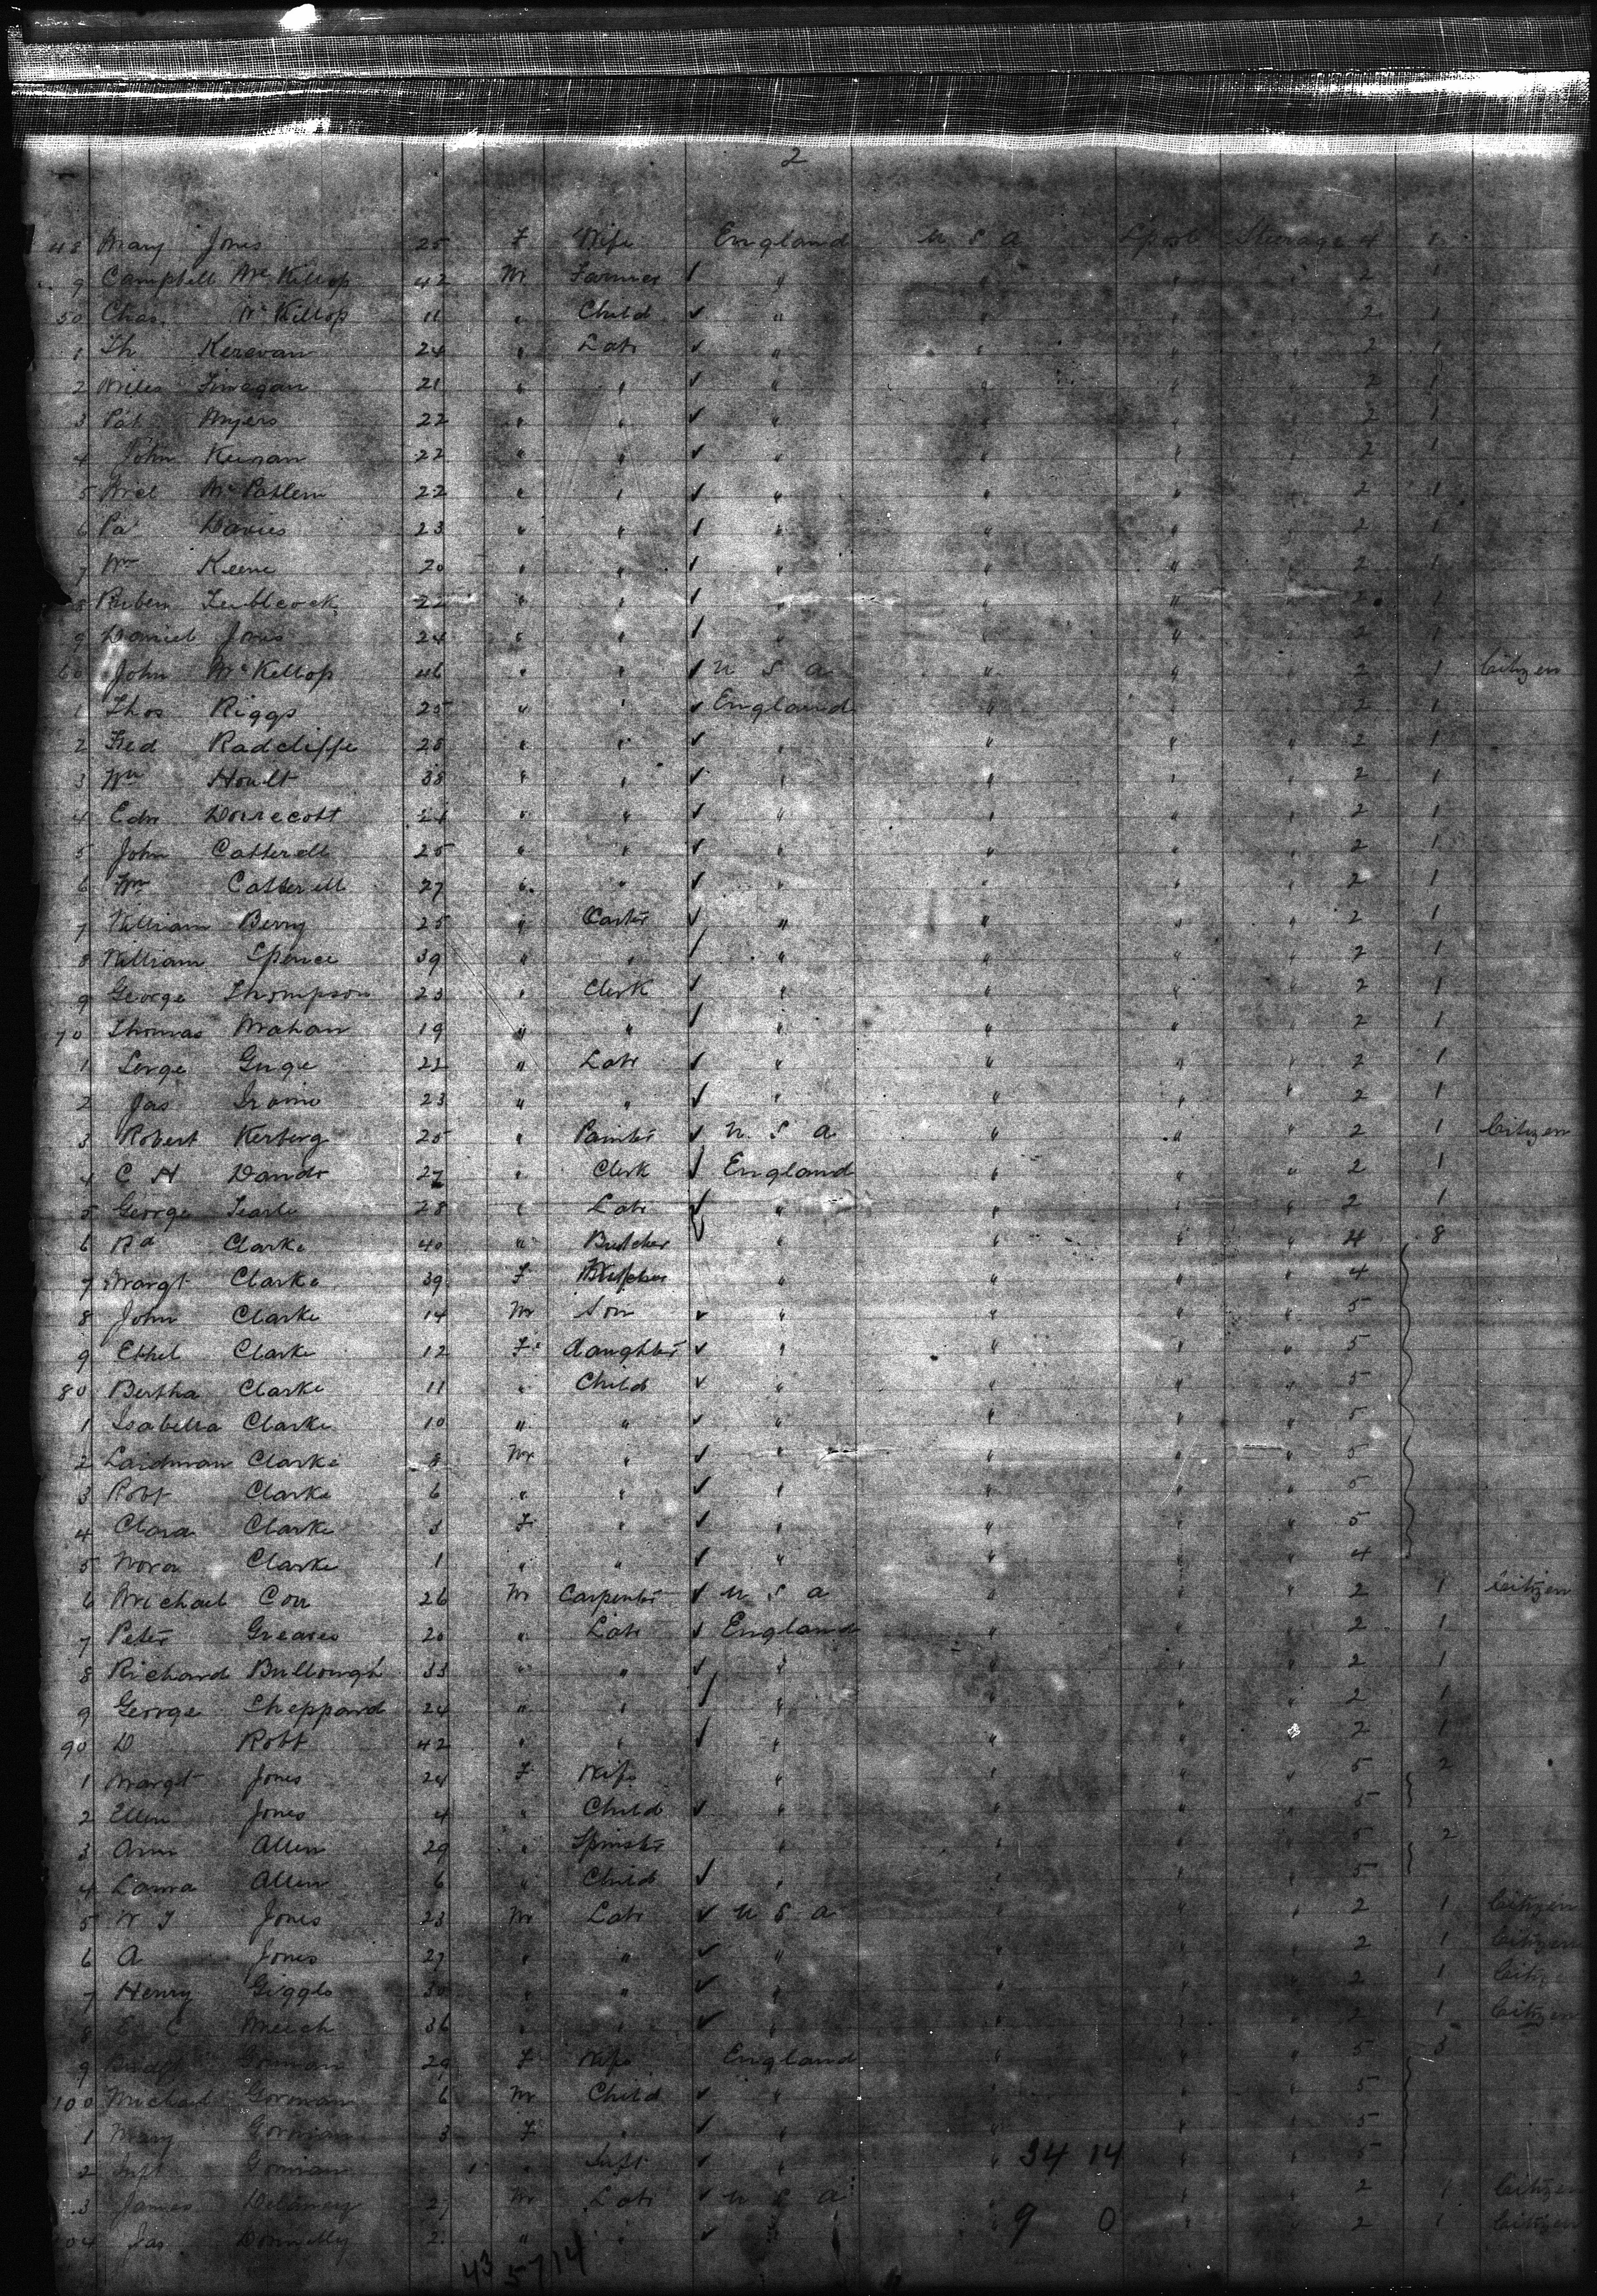 2
48 Mary Jones 25 F Wife England U S A Lpool Steerage 4 1
9 Campbell McKillop 42 M Farmer / " " " " 2 1
50 Chas. McKillop 11 " Child ✓ " " " " 2 1
1 Th Keravan 24 " Labr ✓ " " " " 2 1
2 Miles Finnegan 21 " " ✓ " " " " 2 1
3 Pat Myers 22 " " ✓ " " " " 2 1
4 John Keenan 22 " " ✓ " " " " 2 1
5 22 " " ✓ " " " " 2 1
6 Pa Davies 23 " " / " " " " 2 1
7 Wm Keene 20 " " / " " " " 2 1
8 Ruben 22 " " / " " " " 2 1
9 Daniel Jones 24 " " / " " " " 2 1
60 John McKillop 46 " " ✓ U S A " " " 2 1 Citizen
1 Thos Riggs 25 " " ✓ England " " " 2 1
2 Fred Radcliffe 28 " " ✓ " " " " 2 1
3 Wm Hoult 38 " " ✓ " " " " 2 1
4 Edw Dorrecott " " ✓ " " " " 2 1
5 John Catterall 25 " " ✓ " " " " 2 1
6 Wm Catterall 27 " " ✓ " " " " 2 1
7 William Berry 25 " Carter ✓ " " " " 2 1
8 William Spence 39 " " / " " " " 2 1
9 George Thompson 23 " Clerk ✓ " " " " 2 1
70 Thomas Mahan 19 " " / " " " " 2 1
1 22 " Labr ✓ " " " " 2 1
2 Jas 23 " " ✓ " " " " 2 1
3 Robert 25 " Painter ✓ U. S. A " " " 2 1 Citizen
4 C H 27 " Clerk ✓ England " " " 2 1
5 George Searle 28 " Labr ✓ " " " " 2 1
6 Rd Clarke 40 " Butcher " " " " 4 8
7 Margt Clarke 39 F " " " " 4
8 John Clarke 14 M Son ✓ " " " " 5
9 Ethel Clarke 12 F daughter ✓ " " " " 5
80 Bertha Clarke 11 " Child ✓ " " " " 5
1 Isabella Clarke 10 " " ✓ " " " " 5
2 Laidman Clarke 8 M " ✓ " " " " 5
3 Robt Clarke 6 " " ✓ " " " " 5
4 Clara Clarke 3 F " ✓ " " " " 5
5 Nora Clarke 1 " " ✓ " " " " 4
6 Michael Corr 26 M Carpenter ✓ U S A " " " 2 1 Citizen
7 Peter Greaves 20 " Labr ✓ England " " " 2 1
8 Richard Bullough 33 " " ✓ " " " " 2 1
9 George Sheppard 24 " " / " " " " 2 1
90 D Robt 42 " " / " " " " 2 1
1 Margt Jones 24 F Wife " " " " 5 2
2 Ellen Jones 4 " Child ✓ " " " " 5
3 Ann Allen 29 " Spinster " " " " 5 2
4 Laura Allen 6 " Child ✓ " " " " 5
5 W J Jones 23 M Labr ✓ U S A " " " 2 1 Citizen
6 A Jones 27 " " ✓ " " " " 2 1 Citizen
7 Henry Giggle 30 " " ✓ " " " " 2 1 Citiz
8 C Meech 36 " " ✓ " " " " 2 1 Citizen
9 Bridgt Gorman 29 F Wife England " " " 5 3
100 Michael Gorman 6 M Child ✓ " " " " 5
1 Mary Gorman 3 F " ✓ " " " " 5
2 Inft Gorman " Inft ✓ " " " " 5
34 14
3 James Delaney 27 M Labr ✓ U S A " " " 2 1 Citizen
9 0
104 Jas Donnelly 2 " " ✓ " " " " 2 1 Citizen
43 5714